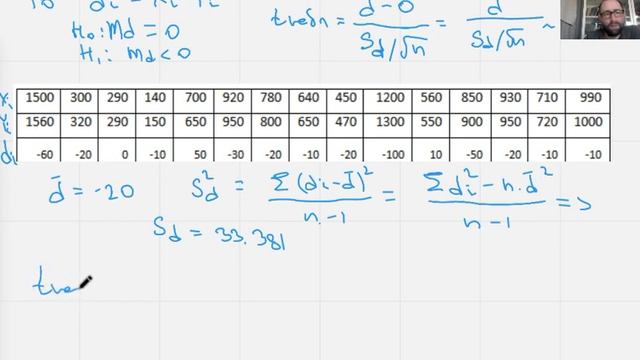 d - 0 d
H₀: Md = 0 = ――― = ――― ~
H₁: Md < 0 Sd/√n Sd/√n
xi 1500 300 290 140 700 920 780 640 450 1200 560 850 930 710 990
Yi 1560 320 290 150 650 950 800 650 470 1300 550 900 950 720 1000
di -60 -20 0 -10 50 -30 -20 -10 -20 -100 10 -50 -20 -10 -10
d̄ = -20 Sd² = Σ(di - d̄)² / n-1 = Σdi² - n·d̄² / n-1 =>
Sd = 33.381